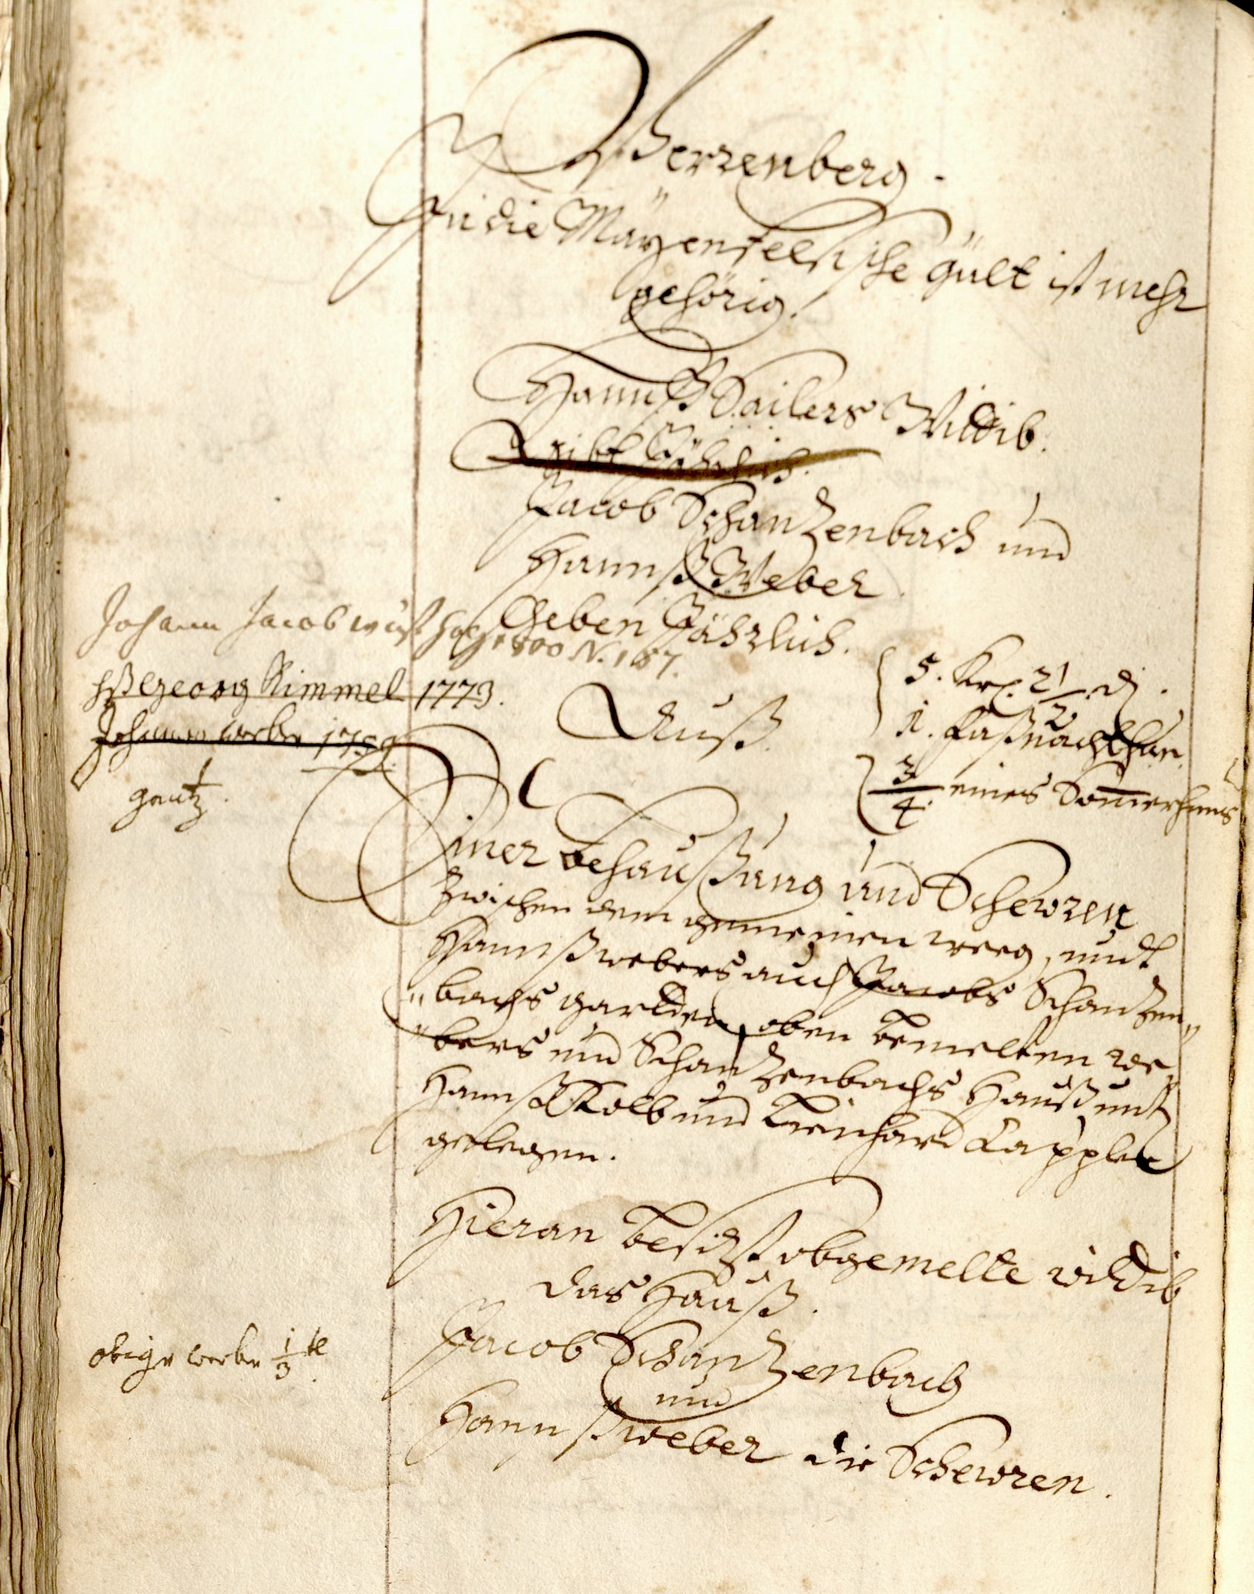 Werrenberg.
In die Mayenfelsische gült ist mehr
gehörig.
Hannß Sailers Wittib.
Gibt Jährlich.
Jacob Schantzenbach und
Hannß Weber
Geben Jährlich.
Johann Jacob Wüst 1800 N. 167.
Georg Kimmel 1773.
Johann Weber 1759.
gantz.
5. Kr. 2 1/2 d.
1. Faßnacht hun
3/4 eines Sommerhuns
Auß
Einer Behaußung und Schewren
Zwischen dem gemeinen weeg, undt
Hannß Webers auch Jacobs Schantzen„
„bachs gartten, oben bemelten We„
„bers und Schantzenbachs Hauß unt
Hannß Kolb und Lienhard Kappler
gelegen.
Hieran besitzt obgemelte Wittib
das Hauß.
Jacob Schantzenbach
und
Hannß Weber die Schewren.
obiger Weber 1/3 te